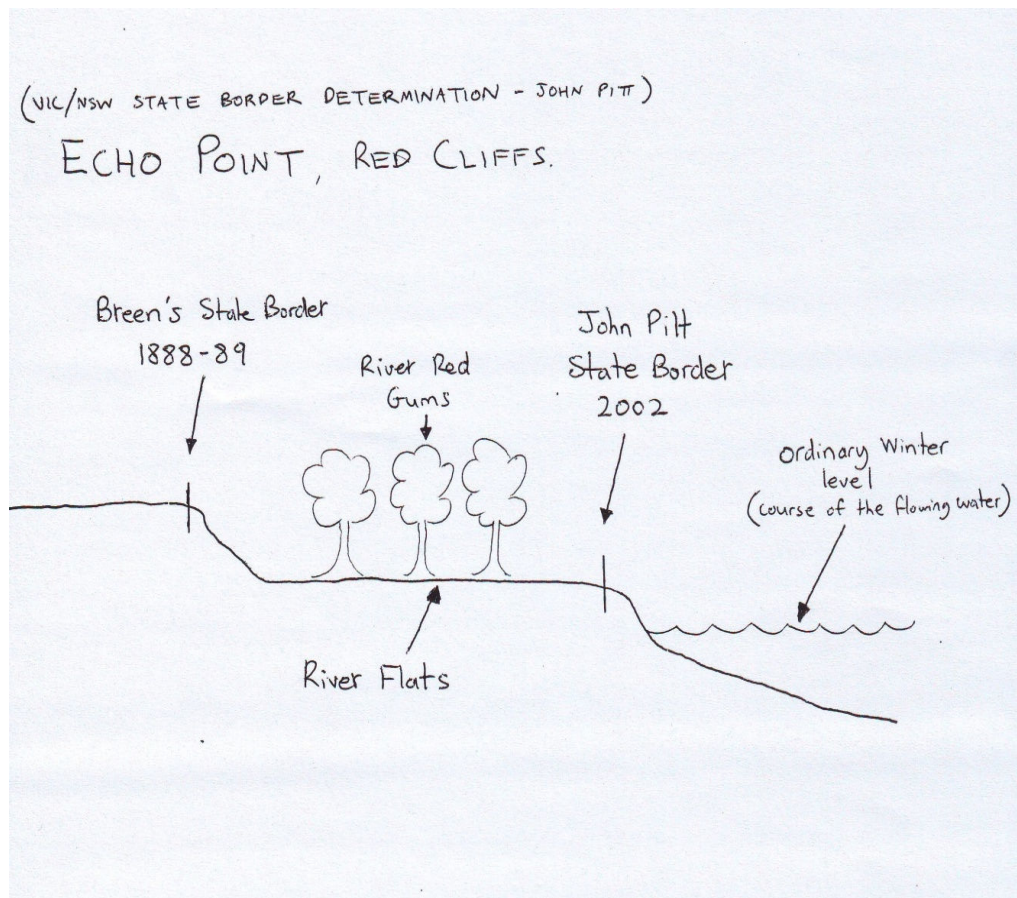 (VIC/NSW STATE BORDER DETERMINATION - JOHN PITT)
ECHO POINT, RED CLIFFS.
Breen's State Border
1888-89
River Red
Gums
John Pitt
State Border
2002
Ordinary Winter
level
(course of the flowing water)
River Flats